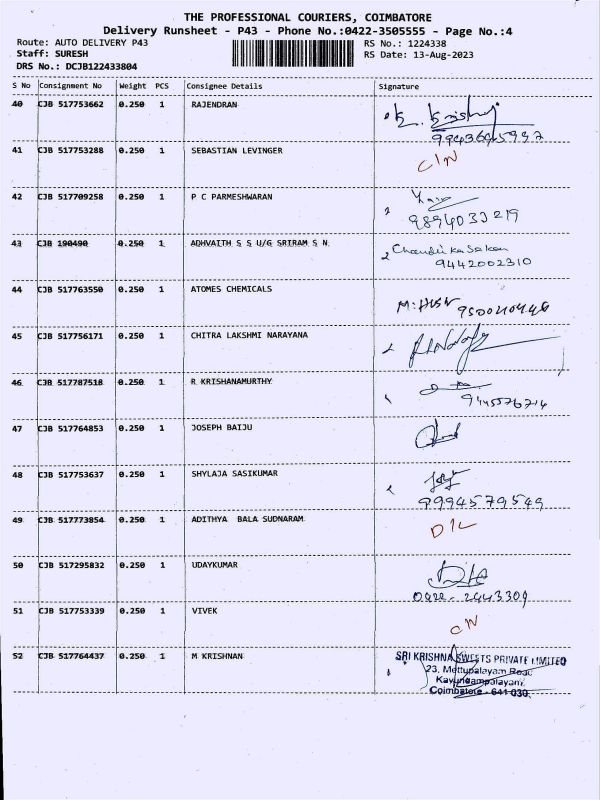 THE PROFESSIONAL COURIERS, COIMBATORE
Delivery Runsheet - P43 - Phone No.:0422-3505555 - Page No.:4
Route: AUTO DELIVERY P43 RS No.: 1224338
Staff: SURESH RS Date: 13-Aug-2023
DRS No.: DCJB122433804
S No Consignment No Weight PCS Consignee Details Signature
40 CJB 517753662 0.250 1 RAJENDRAN
41 CJB 517753288 0.250 1 SEBASTIAN LEVINGER C/N
42 CJB 517709258 0.250 1 P C PARMESHWARAN
9894033219
43 CJB 190490 0.250 1 ADHVAITH S S U/G SRIRAM S N
9442002310
44 CJB 517763550 0.250 1 ATOMES CHEMICALS
45 CJB 517756171 0.250 1 CHITRA LAKSHMI NARAYANA
46 CJB 517787518 0.250 1 R KRISHANAMURTHY
47 CJB 517764853 0.250 1 JOSEPH BAIJU
48 CJB 517753637 0.250 1 SHYLAJA SASIKUMAR
9994579549
49 CJB 517773854 0.250 1 ADITHYA BALA SUDNARAM D/L
50 CJB 517295832 0.250 1 UDAYKUMAR
0422-2443309
51 CJB 517753339 0.250 1 VIVEK C/N
52 CJB 517764437 0.250 1 M KRISHNAN SRI KRISHNA SWEETS PRIVATE LIMITED
23, Mettupalayam Road,
Kavundampalayam,
Coimbatore - 641 030.